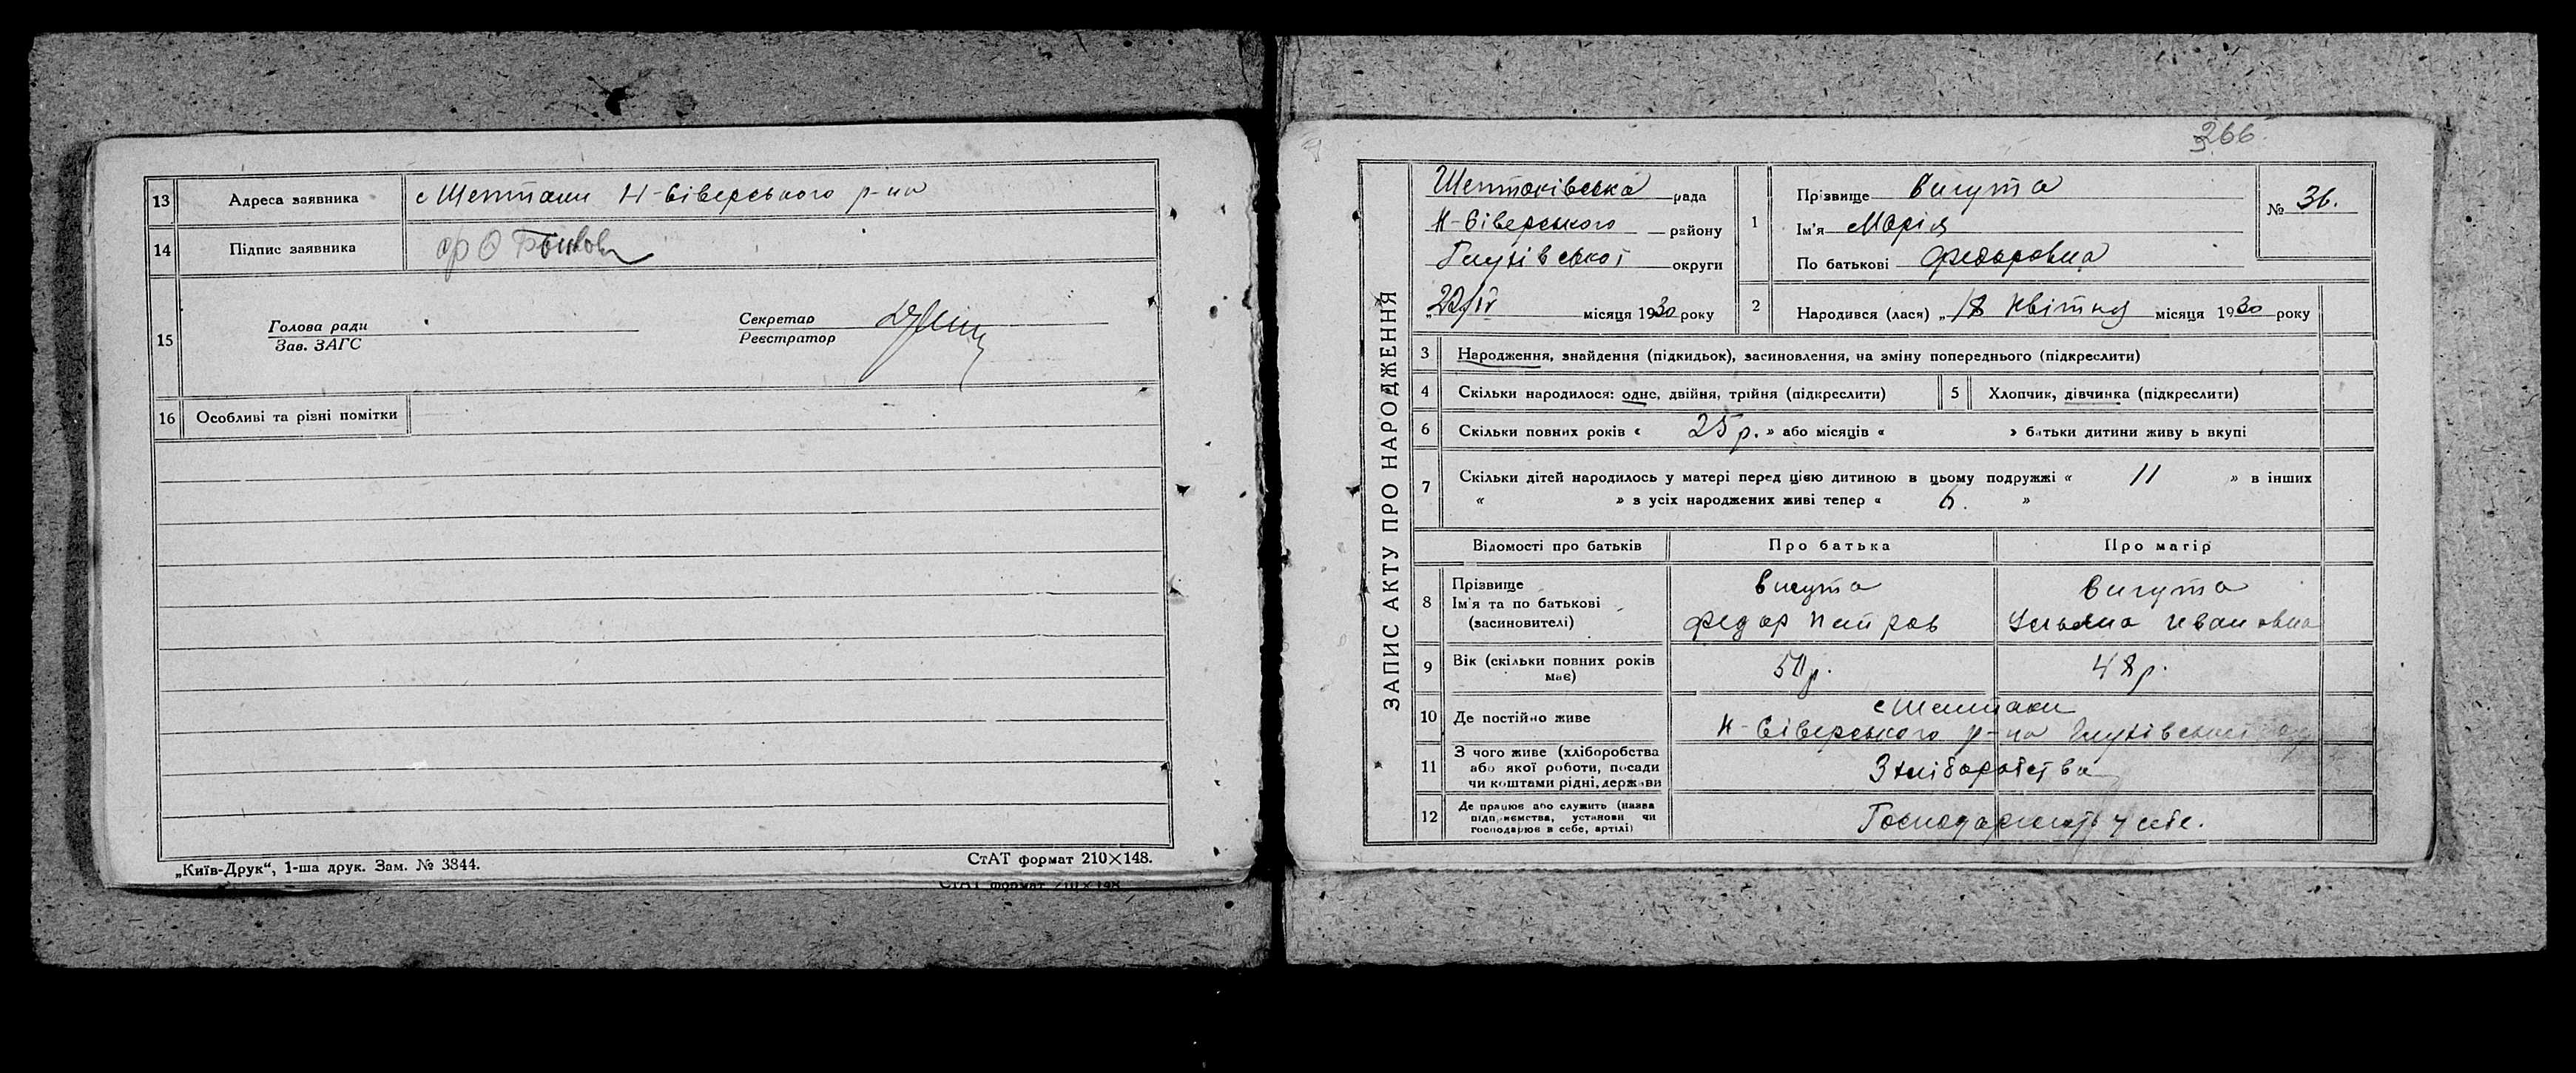 13 Адреса заявника с Шептаки Н-Сіверського р-на
14 Підпис заявника
15 Голова ради
Зав. ЗАГС
Секретар
Реєстратор
16 Особливі та різні помітки
„Київ-Друк“, 1-ша друк. Зам. № 3844.
СтАТ формат 210×148.
СтАТ формат 210×148
366.
ЗАПИС АКТУ ПРО НАРОДЖЕННЯ
Шептаківська рада
Н-Сіверського району
Глухівської округи
„22/IV місяця 1930 року
1 Прізвище Вигута
Ім'я Марія
По батькові Федоровна
№ 36.
2 Народився (лася) „18 Квітня місяця 1930 року
3 Народження, знайдення (підкидьок), засиновлення, на зміну попереднього (підкреслити)
4 Скільки народилося: одне, двійня, трійня (підкреслити)
5 Хлопчик, дівчинка (підкреслити)
6 Скільки повних років « 25 р. » або місяців « » батьки дитини живуть вкупі
7 Скільки дітей народилось у матері перед цією дитиною в цьому подружжі « 11 » в інших
« » з усіх народжених живі тепер « 6. »
Відомості про батьків Про батька Про матір
8 Прізвище
Ім'я та по батькові
(засиновителі)
Вигута
Федор Петров
Вигута
Ульяна Ивановна
9 Вік (скільки повних років
має)
50 р.
48 р.
10 Де постійно живе
с Шептаки
Н-Сіверського р-на Глухівської
11 З чого живе (хліборобства
або якої роботи, посади
чи коштами рідні, держави
З хліборобства
12 Де працює або служить (назва
підприємства, установи чи
господарює в себе, артілі)
Господарюють у себе.